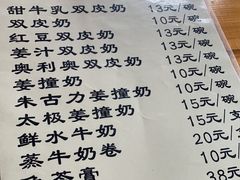 甜牛乳双皮奶 13元/碗
双皮奶 10元/碗
红豆双皮奶 13元/碗
姜汁双皮奶 13元/碗
奥利奥双皮奶 13元/碗
姜撞奶 10元/碗
朱古力姜撞奶 13元/碗
太极姜撞奶 15元/碗
鲜水牛奶 15元/支
蒸牛奶卷 20元/
10元/
38元